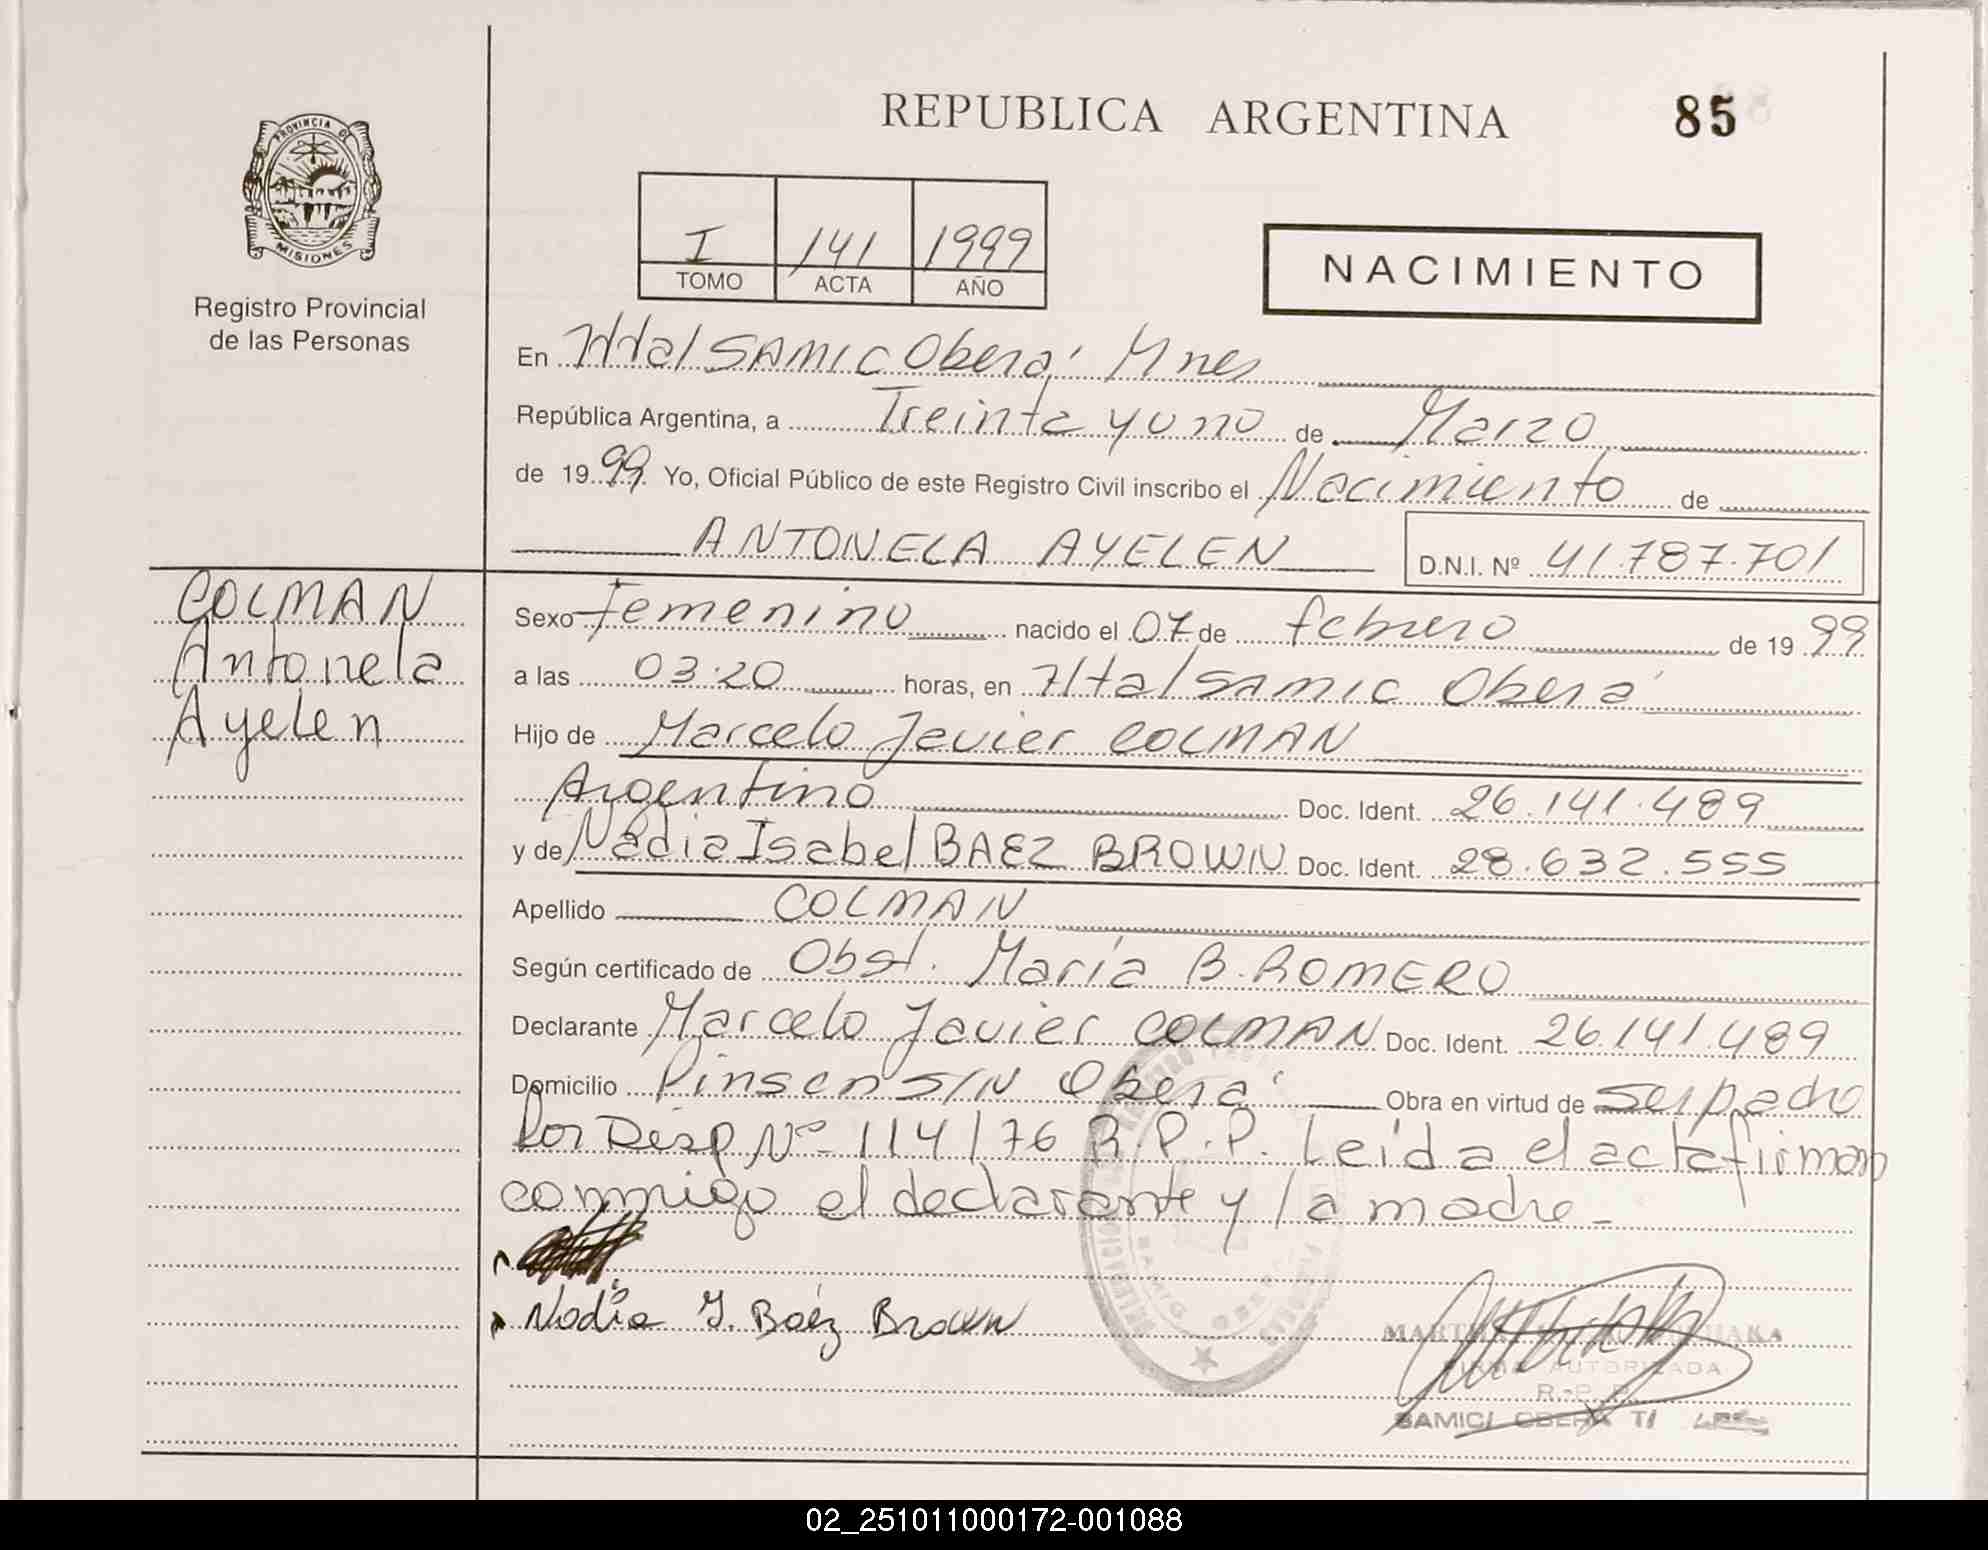 REPUBLICA ARGENTINA
85
PROVINCIA DE
MISIONES
Registro Provincial
de las Personas
I 141 1999
TOMO ACTA AÑO
NACIMIENTO
En Htal SAMIC Oberá Mnes
República Argentina, a Treinta y uno de Marzo
de 1999 Yo, Oficial Público de este Registro Civil inscribo el Nacimiento de
ANTONELA AYELEN D.N.I. Nº 41.787.701
COLMAN
Antonela
Ayelen
Sexo femenino nacido el 07 de febrero de 1999
a las 03:20 horas, en Htal SAMIC Oberá
Hijo de Marcelo Javier COLMAN
Argentino Doc. Ident. 26.141.489
y de Nadia Isabel BAEZ BROWN Doc. Ident. 28.632.555
Apellido COLMAN
Según certificado de Obst. María B. ROMERO
Declarante Marcelo Javier COLMAN Doc. Ident. 26.141.489
Domicilio Pinsen S/N Oberá Obra en virtud de ser padre
Por Disp Nº 114/76 R.P.P. Leída el acta firman
conmigo el declarante y la madre.-
Nadia I. Baéz Brown
FIRMA AUTORIZADA
R.P.P.
SAMIC OBERA
02_251011000172-001088